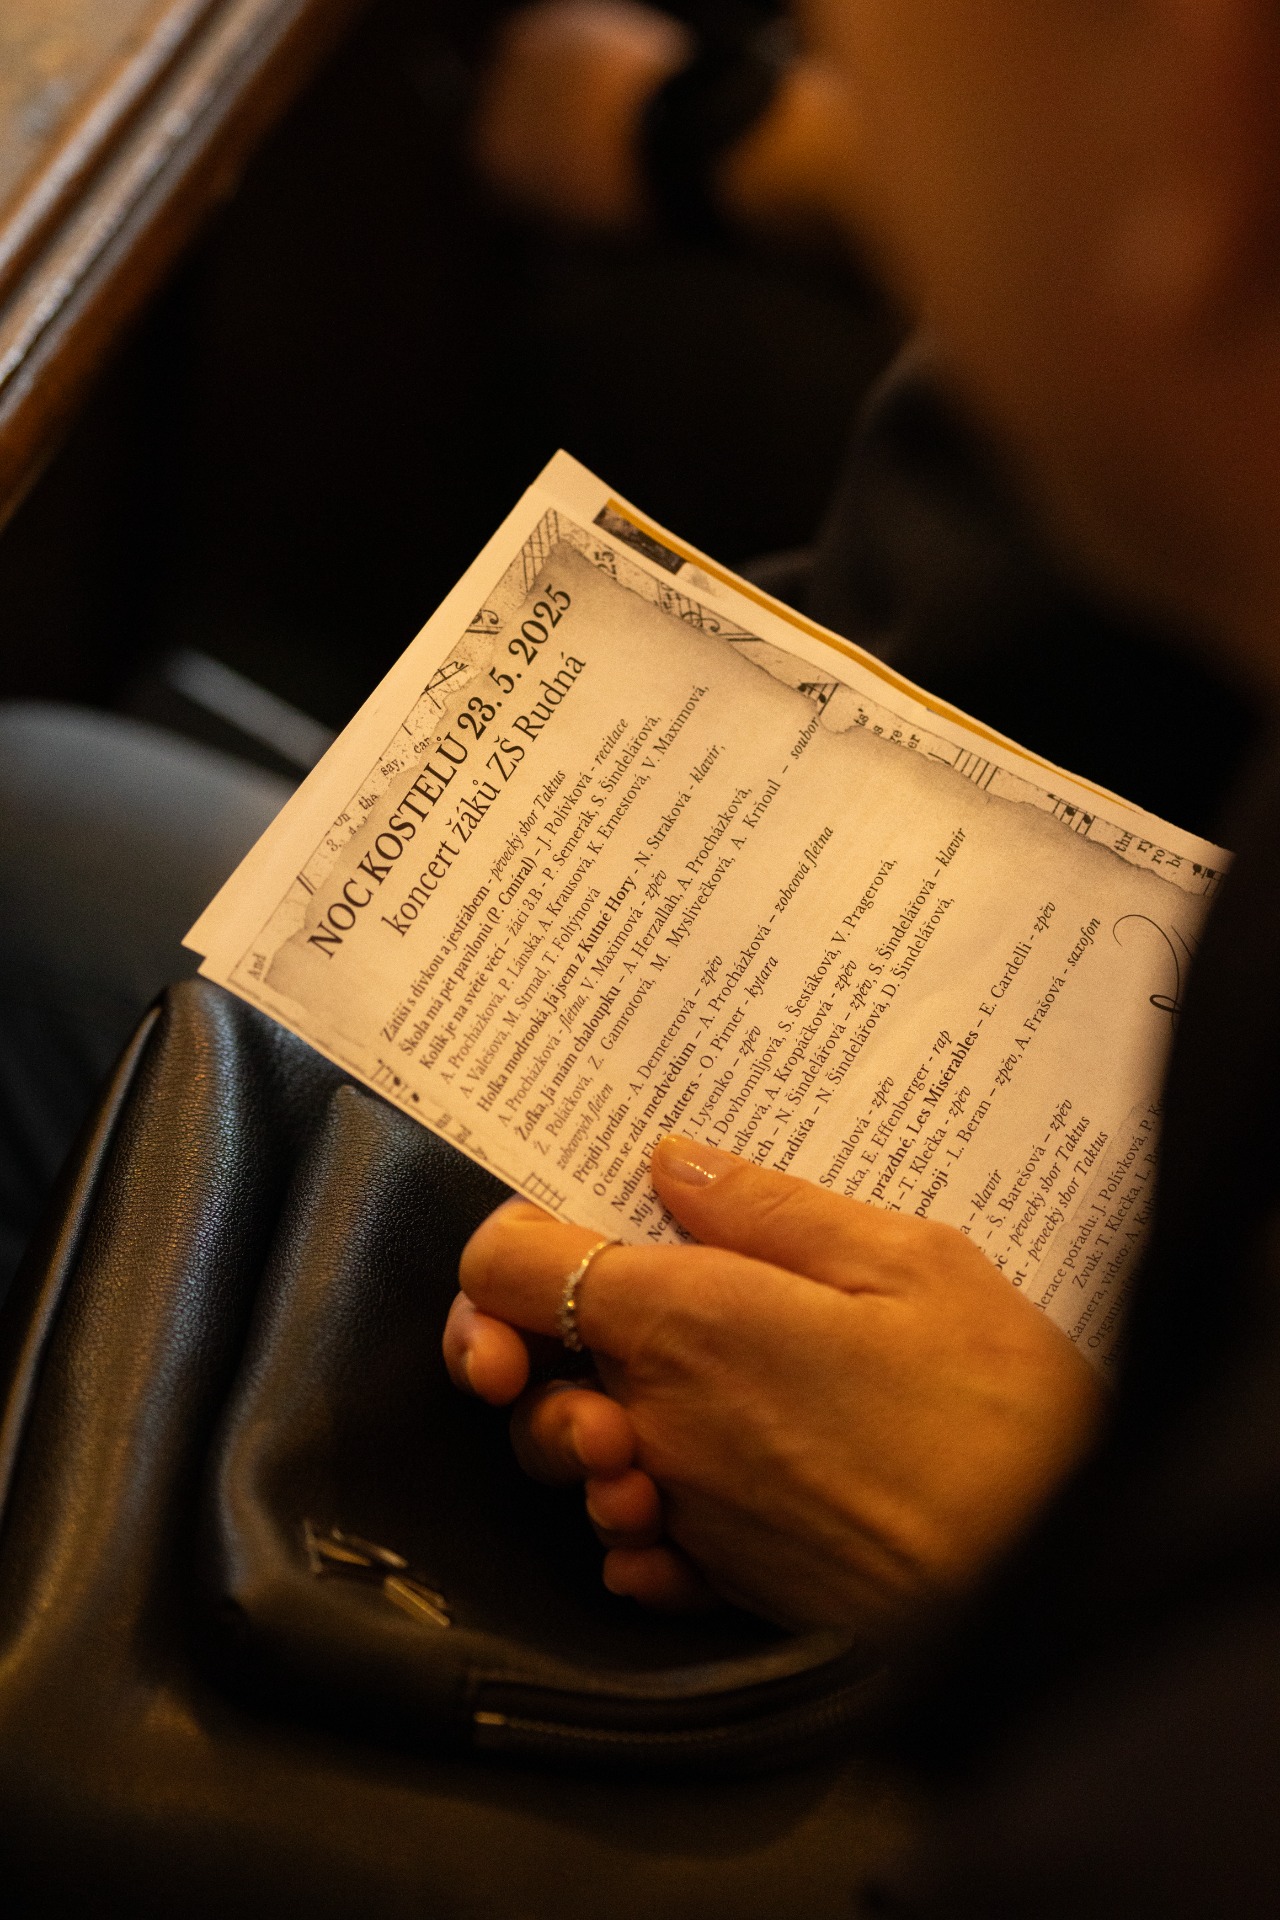 NOC KOSTELŮ 23. 5. 2025
koncert žáků ZŠ Rudná
Zátiší s dívkou a jestřábem - pěvecký sbor Taktus
Škola má pět pavilonů (P. Cmíral) - J. Polívková - recitace
Kolik je na světě věcí – žáci 3.B - P. Semerák, S. Šindelářová,
A. Procházková, P. Lánská, A. Krausová, K. Ernestová, V. Maximová,
A. Valešová, M. Strnad, T. Foltýnová
Holka modrooká, Já jsem z Kutné Hory - N. Straková - klavír,
A. Procházková - flétna, V. Maximová - zpěv
Žofka, Já mám chaloupku – A. Herzallah, A. Procházková,
Ž. Poláčková, Z. Gamrotová, M. Myslivečková, A. Krňoul – soubor
zobcových fléten
Přejdi Jordán - A. Demeterová – zpěv
O čem se zdá medvědům – A. Procházková – zobcová flétna
Nothing Else Matters - O. Pirner - kytara
Mij k Lysenko – zpěv
M. Dovhomiljová, S. Šestáková, V. Pragerová,
udková, A. Kropáčková - zpěv
ích – N. Šindelářová – zpěv, S. Šindelářová – klavír
radišťa – N. Šindelářová, D. Šindelářová,
Smitalová - zpěv
stka, E. Effenberger - rap
prázdné, Les Misérables – E. Cardelli - zpěv
T. Klečka - zpěv
pokoji - L. Beran – zpěv, A. Frašová - saxofon
a – klavír
– Š. Barešová – zpěv
oč - pěvecký sbor Taktus
ot - pěvecký sbor Taktus
derace pořadu: J. Polívková, P. K
Zvuk: T. Klečka, L.
Kamera, video: A. Kub
Organiz
And
say,
25